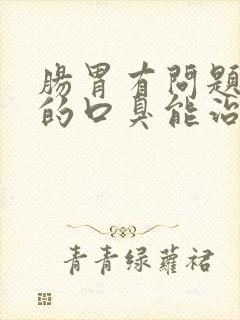 腸胃有問題
的口臭能治
青青绿蘿裙